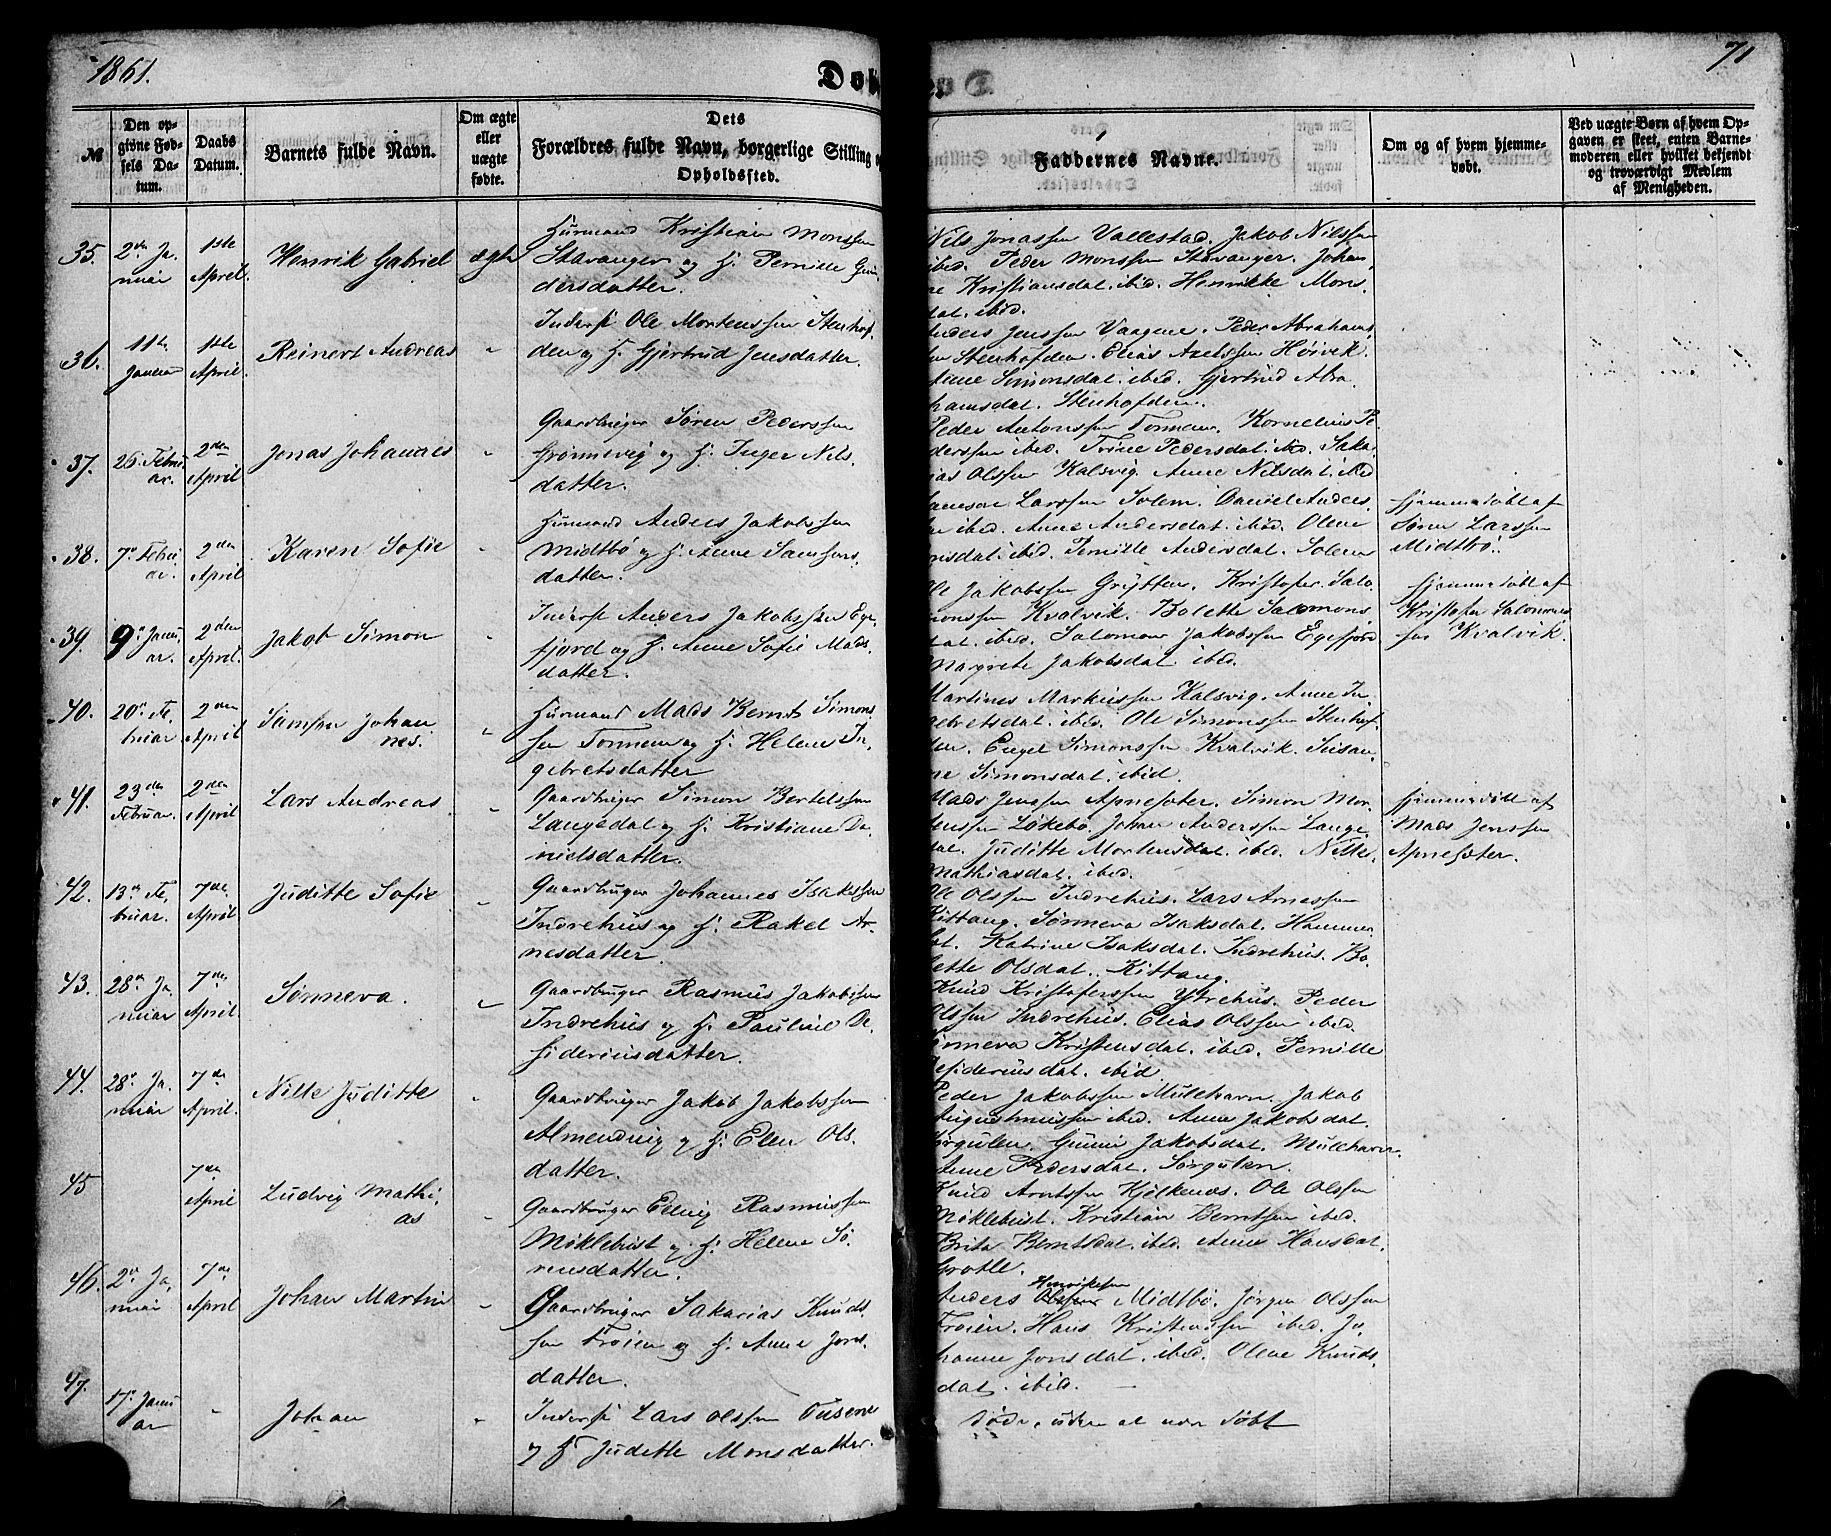 1861.
Døb
71
№
Den op-
givne Fød-
sels Da-
tum.
Daabs
Datum.
Barnets fulde Navn.
Om ægte
eller
uægte
fødte.
Dets
Forældres fulde Navn, borgerlige Stilling o
Opholdssted.
Faddernes Navne.
Om og af hvem hjemme-
døbt.
Ved uægte Børn af hvem Op-
gaven er skeet, enten Barne-
moderen eller hvilket bekjendt
og troværdigt Medlem
af Menigheden.
35.
2den Ja-
nuar
1ste
April.
Henrik Gabriel
ægte
Huusmand Kristian Monssen
Stavanger og H. Pernille Gun
dersdatter.
Nils Jonassen Vallestad. Jakob Nilssen
ibid. Peder Monssen Stavanger. Johan
ne Kristiansdat. ibid. Henrikke Mons
dat. ibid.
36.
11te
Januar
1ste
April.
Reinert Andreas
"
Inderst Ole Mortenssen Stenhof
den og H. Gjertrud Jensdatter.
nders Jenssen Vaagene. Peder Abrahams
sen Stenhofden. Elias Axelssen Høivik.
Anne Simonsdat. ibid. Gjertrud Abra
hamsdat. Stenhofden.
37.
26. Febru
ar.
2den
April
Jonas Johannes
"
Gaardbruger Søren Pederssen
Grønnevig og H. Inger Nils-
datter.
Peder Antonssen Tonnen. Kornelius Pe
derssen ibid. Trine Pedersdat. ibid. Saka
ias Olssen Kalsvig. Anne Nilsdat. ibid
38.
7de Febru
ar.
2den
April
Karen Sofie
"
Huusmand Anders Jakobssen
Midtbø og H. Anne Samsons
datter.
Samson Larssen Solem. Daniel Anders
en ibid. Anne Andersdat. ibid. Olene
nsdat. ibid. Pernille Andersdat. Solem
Hjemmedøbt af
Søren Larssen
Midtbø.
39.
9de Janu
ar.
2den
April.
Jakob Simon
"
Inderst Anders Jakobssen Ege-
fjord og H. Anne Sofie Mads
datter.
Ole Jakobssen Grytten. Kristofer Salo
monssen Kvalvik. Bolette Salomons
dat. ibid. Salomon Jakobssen Egefjord
Margrete Jakobsdat. ibid.
Hjemmedøbt af
Kristofer Salomons
sen Kvalvik.
40.
20de Fe
bruar
2den
April
Samson Johan
nes.
"
Huusmand Mads Bernt Simons
sen Tonnen og H. Helene In-
gebretsdatter
Martines Markussen Kalsvig. Anne In
gebretsdat. ibid. Ole Simonssen Stenhof
den. Engel Simonssen Kvalvik. Susan
ne Simonsdat. ibid.
41.
23den
Februar
2den
April
Lars Andreas
"
Gaardbruger Simon Bertelssen
Langedal og H. Kristiane Da
nielsdatter.
Mads Jenssen Apnesæter. Simon Mor
tenssen Løkebø. Johan Anderssen Lange
dal. Juditte Mortensdat. ibid. Nille
Mathiasdat. ibid.
Hjemmedøbt af
Mads Jenssen
Apnesæter.
42.
13de Fe
bruar.
7de
April
Juditte Sofie
"
Gaardbruger Johannes Isakssen
Indrehus og H. Rakel Ar
nesdatter.
Ole Olssen Indrehus. Lars Arnessen
Kittang. Sønneva Isaksdat. Hammer
set. Katrine Isaksdat. Indrehus. Bo
lette Olsdat. Kittang.
43.
28de Ja
nuar
7de
April.
Sønneva.
"
Gaardbruger Rasmus Jakobssen
Indrehus og H. Pauline De
sideriusdatter.
Knud Kristoferssen Ytrehus. Peder
Olssen Indrehus. Elias Olssen ibid.
Sønneva Kristensdat. ibid. Pernille
Desideriusdat. ibid.
44.
28de Ja.
nuar
7de
April.
Nille Juditte
"
Gaardbruger Jakob Jakobssen
Almendvig og H. Ellen Ols
datter.
Peder Jakobssen Mulehavn. Jakob
Augustinussen ibid. Anne Jakobsdat.
Sørgulen. Gunni Jakobsdat. Mulehavn.
Anne Pedersdat. Sørgulen.
45
7de
April
Ludvig Mathi
as
"
Gaardbruger Ellvig Rasmussen
Møklebust og H. Helene Sø
rensdatter.
Knud Arntssen Kjelkenæs. Ole Olssen
Møklebust. Kristian Berntsen ibid.
Brita Berntsdat. ibid. Anne Hansdat.
Grotle.
46.
2den Ja
nuar
7de
April
Johan Martin
"
Gaardbruger Sakarias Knuds
sen Frøien og H. Anne Jons
datter.
Henrikssen
Anders Olssen Midtbø. Jørgen Olssen
Frøien. Hans Kristenssen ibid. Jo
hanne Jonsdat. ibid. Olene Knuds
dat. ibid.
47.
17de Janu
ar
"
Johan
"
Inderst Lars Olssen Tusene
og H. Juditte Monsdatter.
døde, uden at være døbt